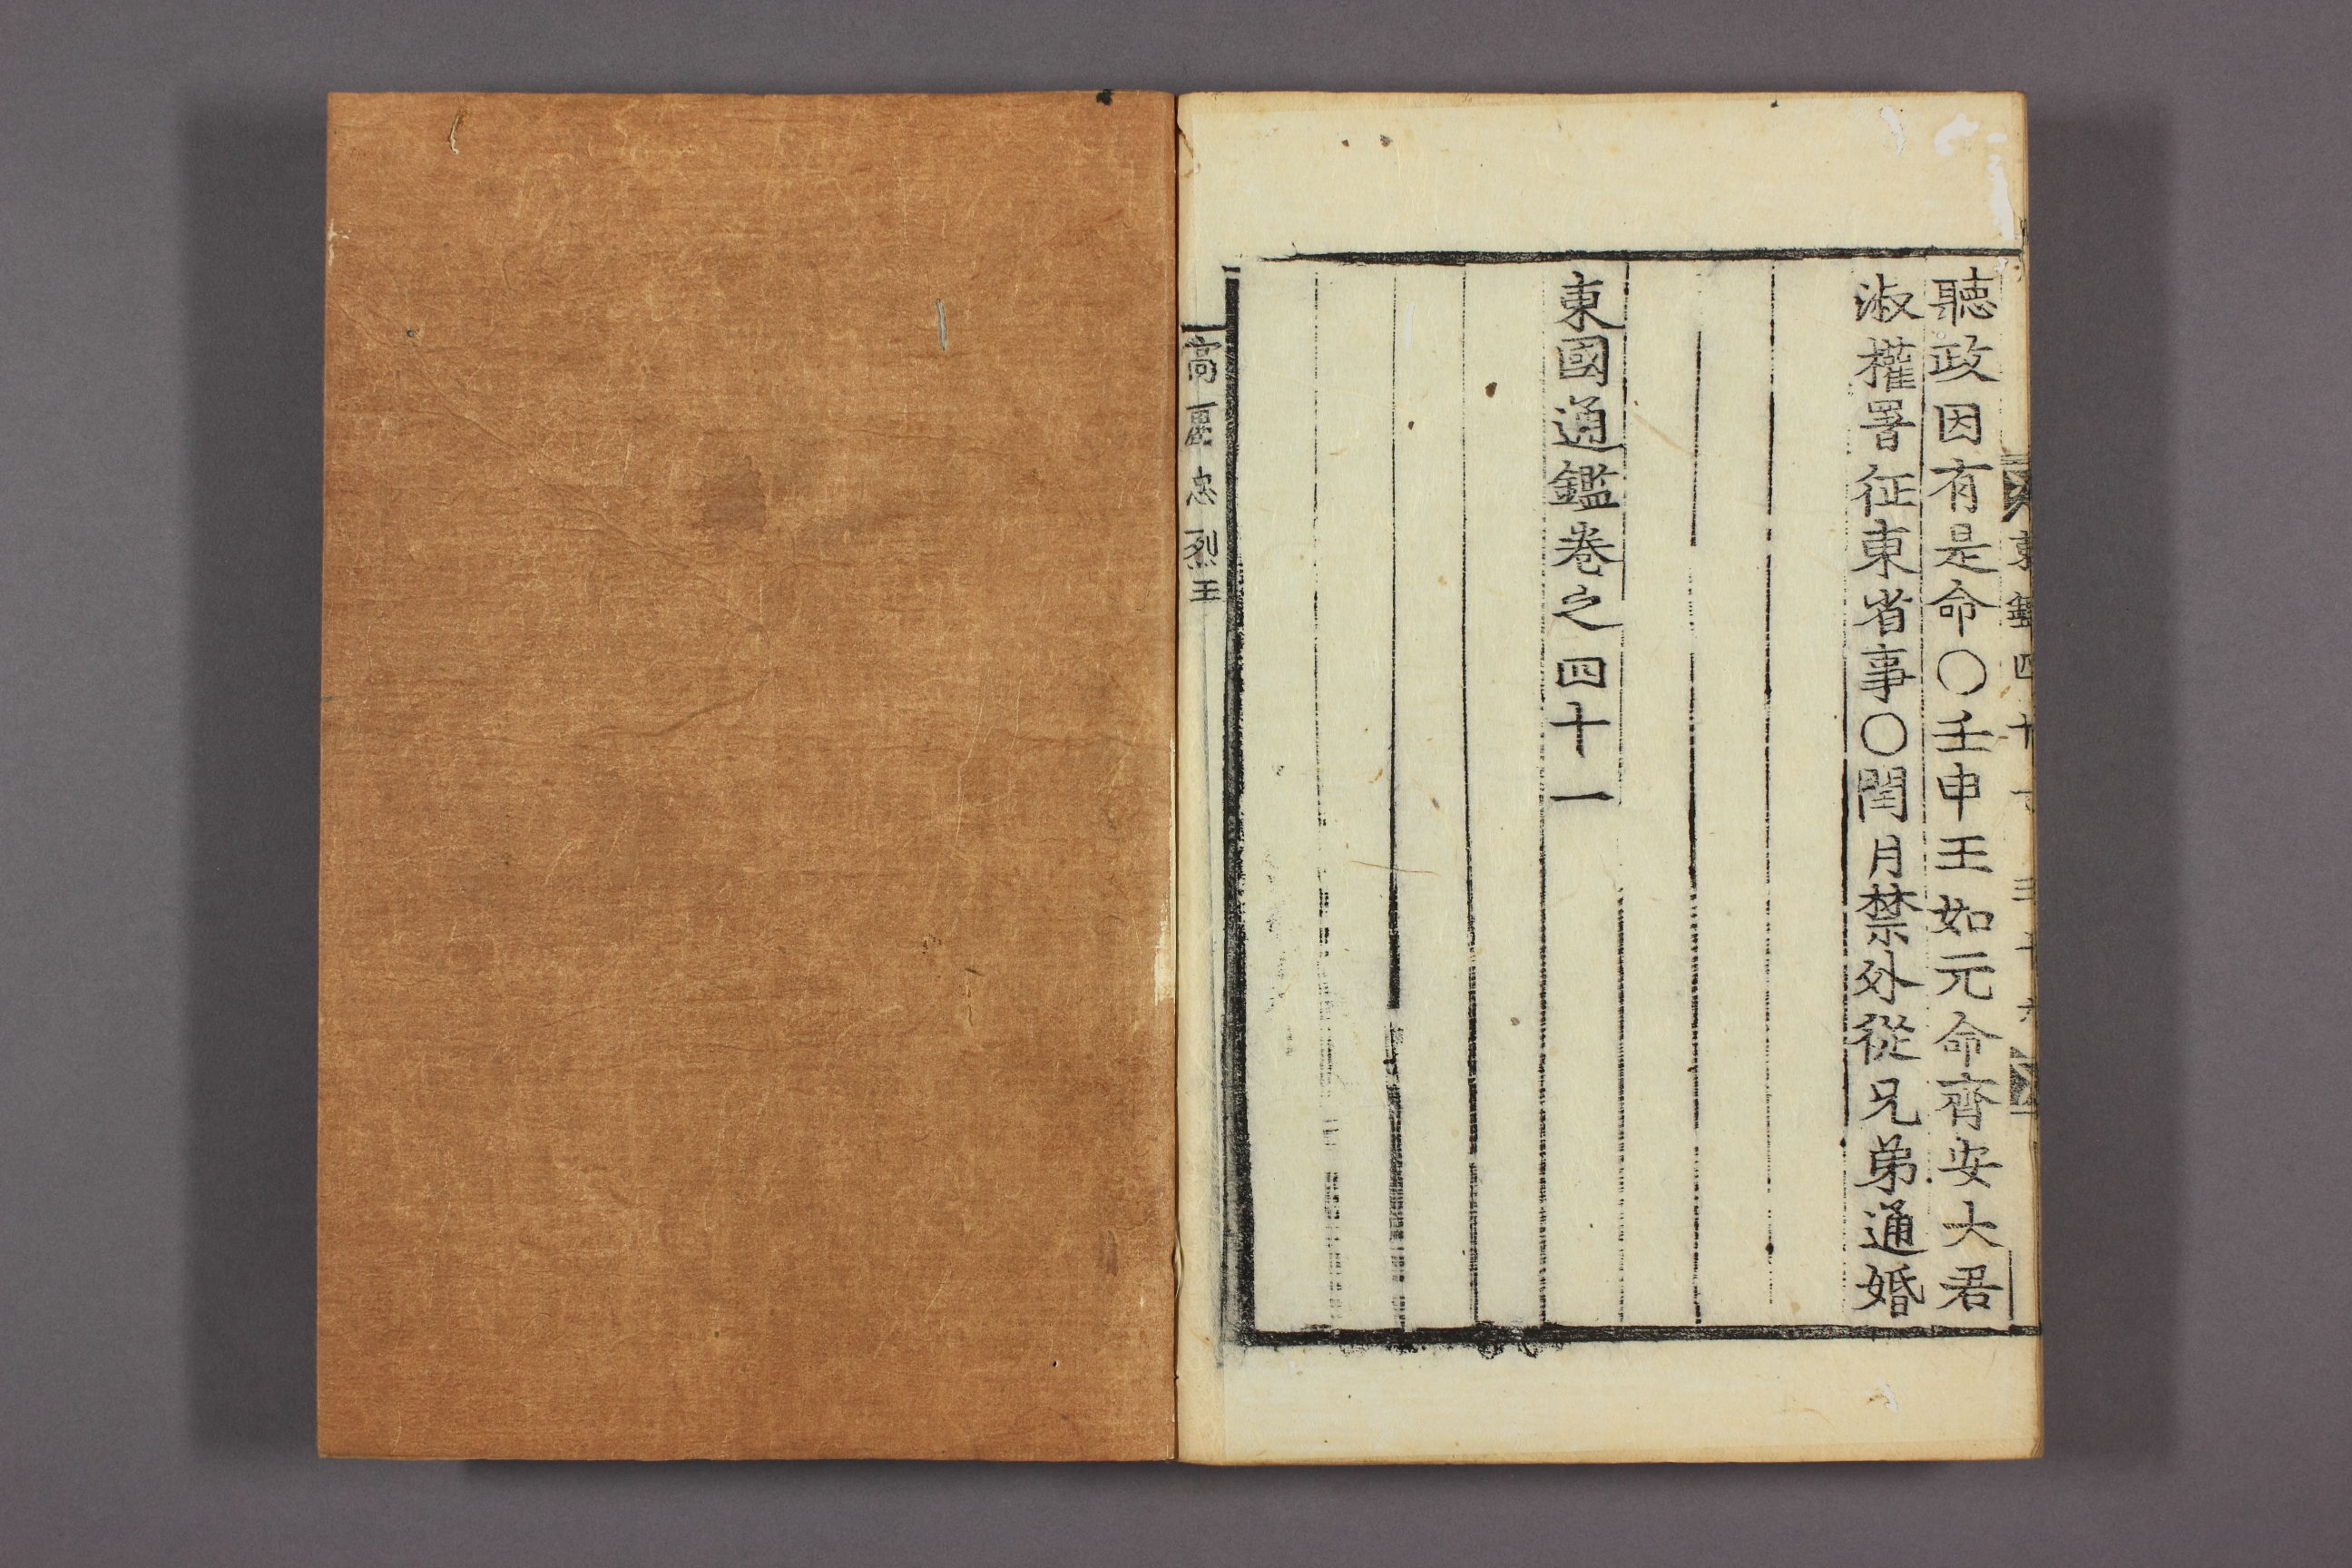 聽政因有是命〇壬申王如元命齊安大君
淑權署征東省事〇閏月禁外從兄弟通婚
東國通鑑卷之四十一
高麗忠烈王